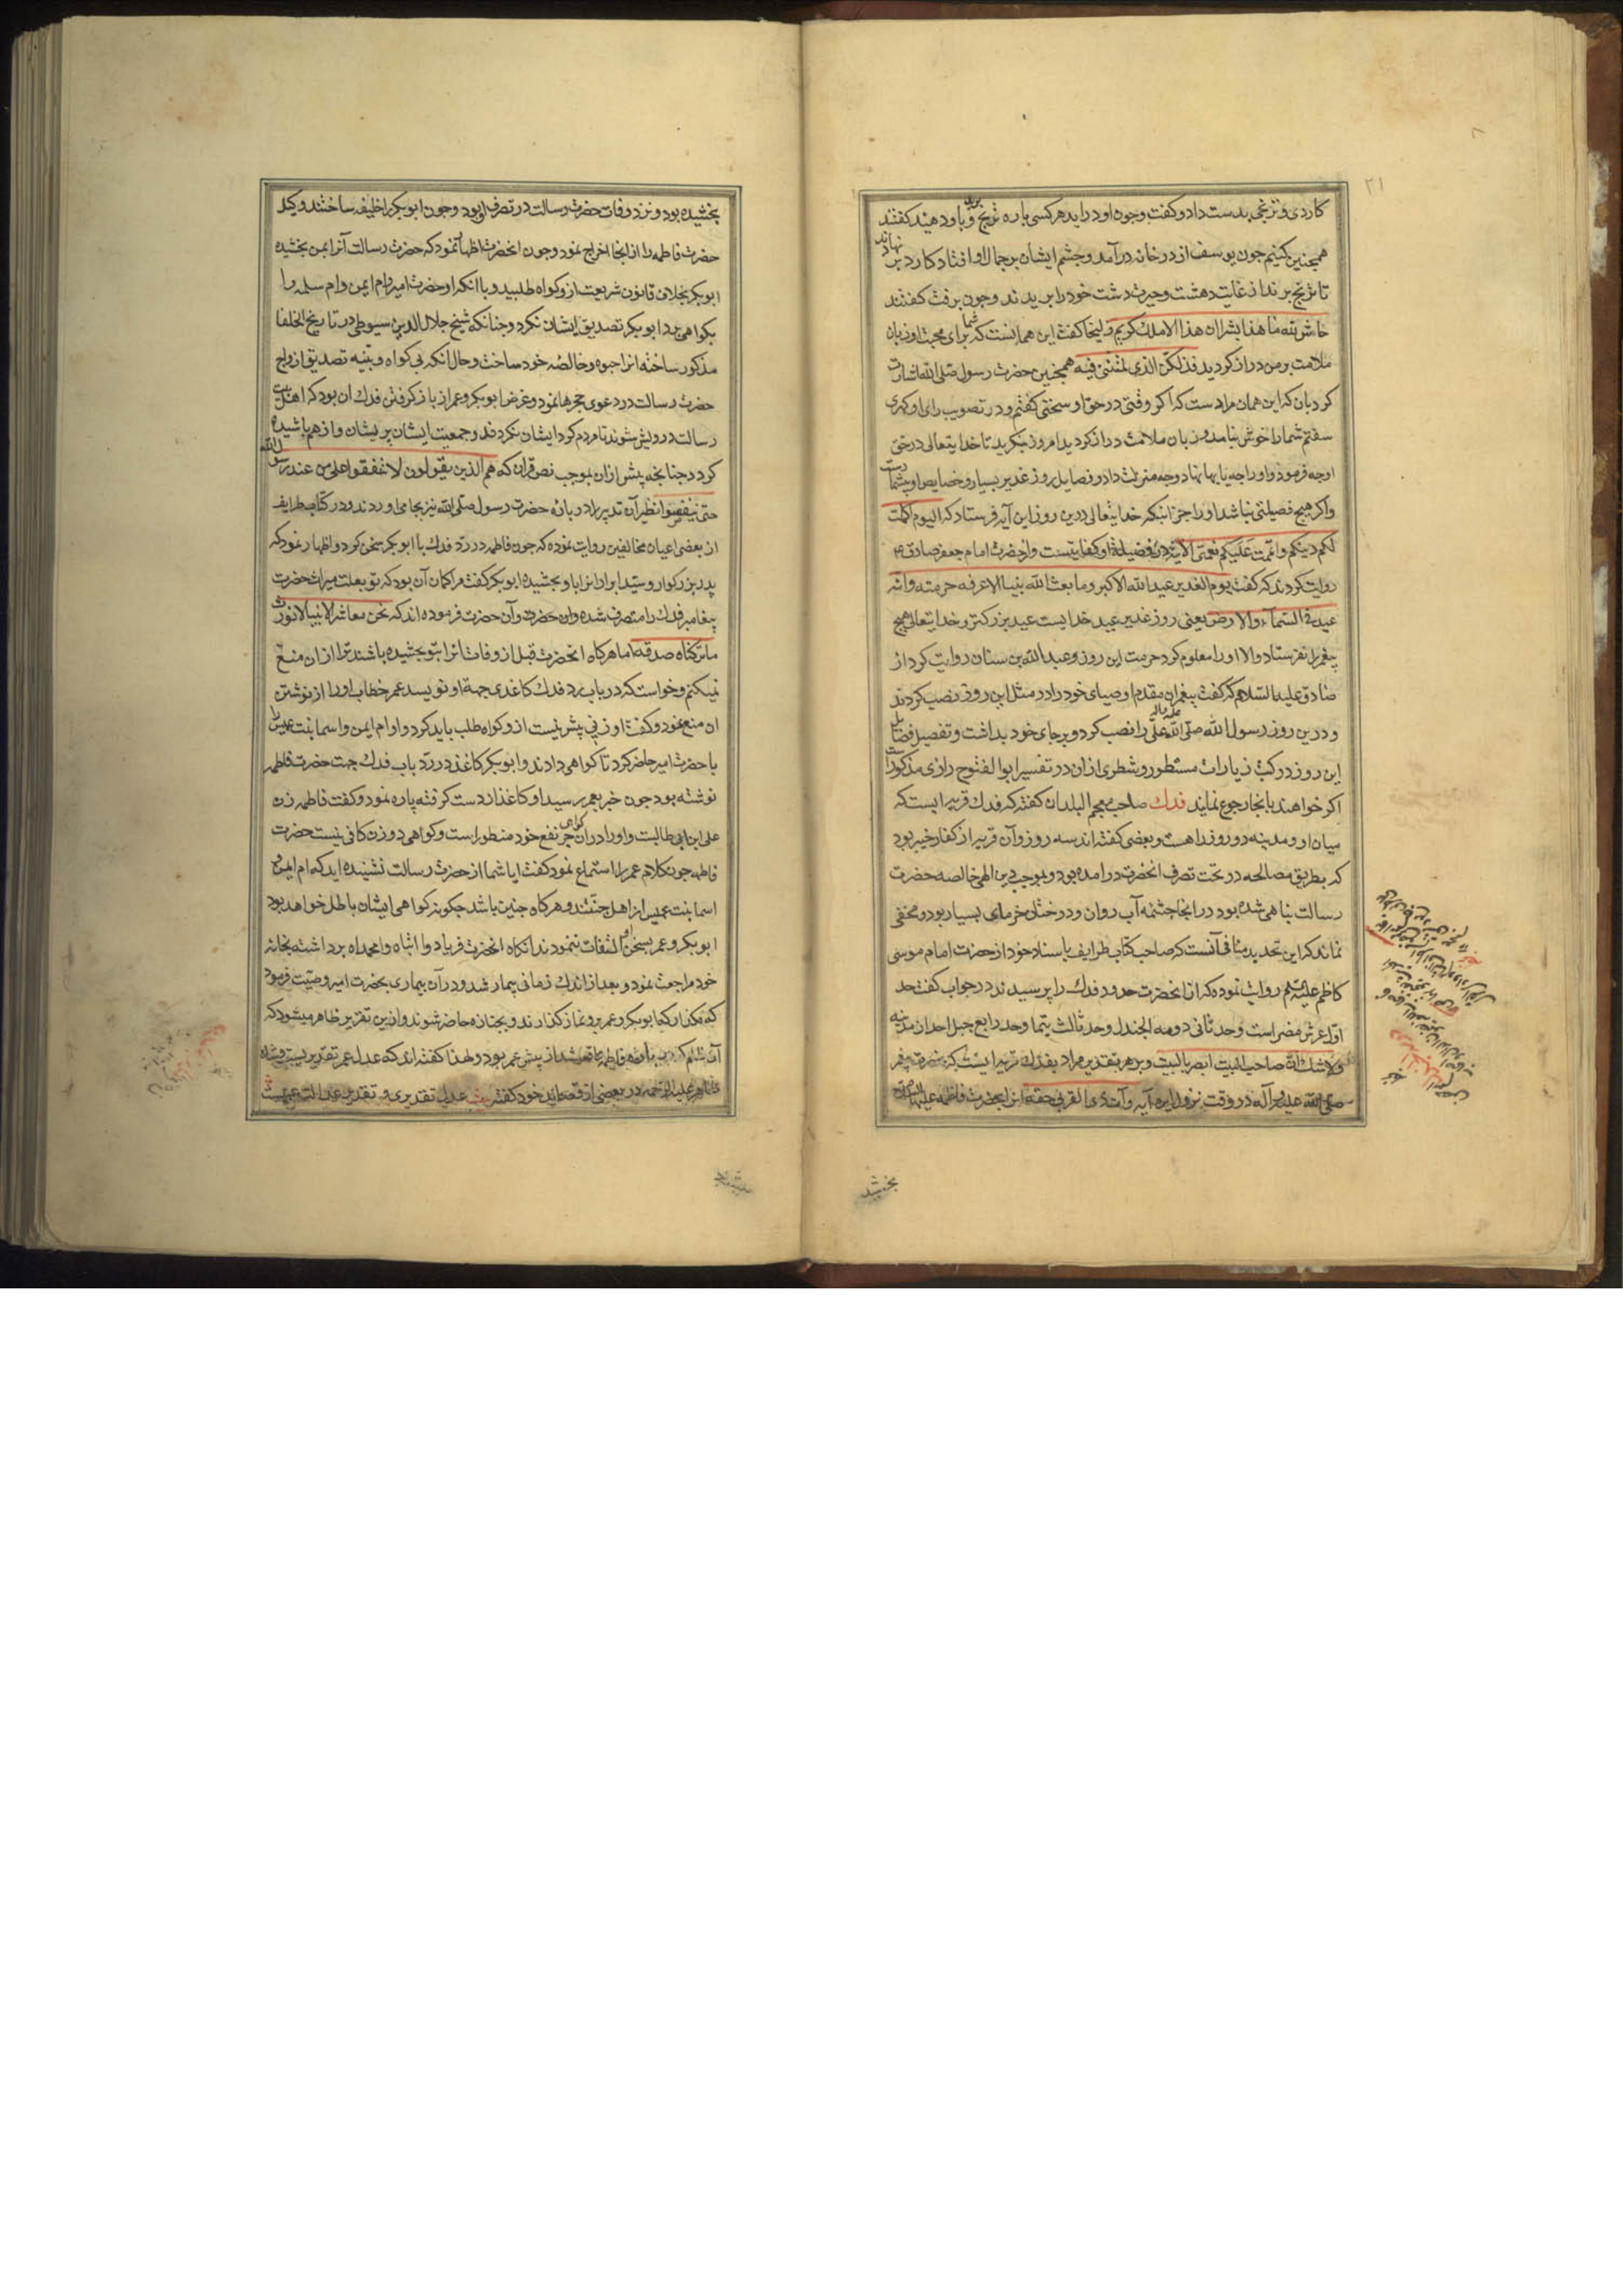 ۲۱
کاردی و ترنجی بدست داد و کفت چون او در اید هر کسی پاره ترنج برید و باو دهید کفتند
همچنین کنیم چون یوسف از در خانه در آمد و چشم ایشان بر جمال او افتاد کارد بر نهادند
تا ترنج برند از غایت دهشت و حیرت دست خود را بریدند و چون برفت کفتند
حاش لله ما هذا بشرا ان هذا الا ملک کریم زلیخا کفت این همانست که شما برای محبت او زبان
ملامت بر من دراز کردید فذلکن الذی لمتننی فیه همچنین حضرت رسول صلی الله اشارت
کرد بان که این همان مرادست که اکر وقتی در حق او سخنی کفتم و در تصویب رای او کهری
سفتم شما را خوش نیامد و زبان ملامت دراز کردید امروز بنکرید تا خدایتعالی در حق
او چه فرمود و او را چه پایها نهاد و چه منزلت داد و فضایل روز غدیر بسیار و خصایص او بیشمارست
و اکر هیچ فضیلتی نباشد او را جز انکه خدایتعالی درین روز این آیه فرستاد که الیوم اکملت
لکم دینکم و اتممت علیکم نعمتی الآیة در فضیلة او کفایتست و از حضرت امام جعفر صادق ع
روایت کردند که کفت یوم الغدیر عید الله الاکبر و ما بعث الله نبیا الا عرفه حرمته و انه
عید فی السمآء و الارض یعنی روز غدیر عید خدایست عید بزرکتر و خدایتعالی هیچ
پیغمبر را نفرستاد و الا او را معلوم کرد حرمت این روز و عبد الله بن سنان روایت کرد از
صادق علیه السلام که کفت پیغمبران مقدم اوصیای خود را در مثل این روز نصب کردند
و درین روز رسول الله صلی الله علیه واله علی را نصب کرد و بر جای خود بداشت و تفصیل فضایل
این روز در کتب زیارات مسطور و شطری از ان در تفسیر ابوالفتوح رازی مذکورست
اکر خواهند بانجا رجوع نمایند فدک صاحب معجم البلدان کفته که فدک قریه ایست که
میان او و مدینه دو روز راهست و بعضی کفته اند سه روز و آن قریه از کفار خیبر بود
که بطریق مصالحه در تحت تصرف انحضرت در امده بود و بموجب دین الهی خالصه حضرت
رسالت پناهی شده بود در انجا چشمه آب روان و درختان خرمای بسیار بود و مخفی
نماند که این تحدید منافی آنست که صاحب کتاب طرایف باسناد خود از حضرت امام موسی
کاظم علیه السلم روایت نموده که از انحضرت حدود فدک را پرسیدند در جواب کفت حد
اول عرش مصر است و حد ثانی دومه الجندل و حد ثالث تیما و حد رابع جبل احد از مدینه
و لا شک ان صاحب البیت ابصر بالبیت و بر هر تقدیر مراد بفدک قریه ایست که حضرت پیغمبر
صلی الله علیه و آله در وقت نزول ایه وآت ذی القربی حقه انرا بحضرت فاطمه علیها السلام
بخشیده
بخشیده بود و نزد وفات حضرت رسالت در تصرف او بود و چون ابو بکر را خلیفه ساختند وکیل
حضرت فاطمه را از انجا اخراج نمود و چون انحضرت اظهار نمود که حضرت رسالت آنرا بمن بخشیده
ابو بکر بخلاف قانون شریعت از و کواه طلبید و با انکه او حضرت امیر و ام ایمن و ام سلمه را
بکواهی برد ابو بکر تصدیق ایشان نکرد و چنانکه شیخ جلال الدین سیوطی در تاریخ الخلفا
مذکور ساخته انرا حبوه و خالصه خود ساخت و حال انکه بی کواه و بینه تصدیق ازواج
حضرت رسالت در دعوی حجرها نمود و غرض ابو بکر و عمر از باز کرفتن فدک ان بود که اهل بیت
رسالت درویش شوند تا مردم کرد ایشان نکردند و جمعیت ایشان پریشان و از هم پاشیده
کردد چنانچه پیش از ان بموجب نص قران که هم الذین یقولون لا تنفقوا علی من عند رسول الله
حتی ینفضوا نظیر آن تدبیر را در باره حضرت رسول صلی الله نیز بجا می اوردند و در کتاب طرایف
از بعضی اعیان مخالفین روایت نموده که چون فاطمه در رد فدک با ابو بکر سخن کرد و اظهار نمود که
پدر بزرکوار و سید ابرار انرا باو بخشیده ابو بکر کفت مرا کمان آن بود که تو بعلت میراث حضرت
پیغامبر فدک را متصرف شده و ان حضرت فرموده اند که نحن معاشر الانبیا لا نورث
ما ترکناه صدقه اما هر کاه انحضرت قبل از وفات انرا بتو بخشیده باشند ترا از ان منع
نمیکنم و خواست که در باب رد فدک کاغذی جهة او نویسد عمر خطاب او را از نوشتن
ان منع نمود و کفت او زنی بیش نیست از و کواه طلب باید کرد و او ام ایمن و اسما بنت عمیس را
با حضرت امیر حاضر کرد تا کواهی دادند و ابو بکر کاغذ در رد باب فدک جهت حضرت فاطمه
نوشته بود چون خبر بعمر رسید او کاغذ از دست کرفته پاره نمود و کفت فاطمه زن
علی ابن ابی طالبست و او را در ان کواهی جر نفع خود منظور است و کواهی دو زن کافی نیست حضرت
فاطمه چون کلام عمر را استماع نمود کفت ایا شما از حضرت رسالت نشنیده اید که ام ایمن و
اسما بنت عمیس از اهل جنتند و هر کاه چنین باشد چکونه کواهی ایشان باطل خواهد بود
ابو بکر و عمر بسخن او التفات ننمودند انکاه انحضرت فریاد وا ابتاه وا محمداه برداشته بخانه
خود مراجعت نمود و بعد از اندک زمانی بیمار شد و در آن بیماری بحضرت امیر وصیت فرمود
که نکذارد که ابو بکر و عمر برو نماز کذارند و بجنازه حاضر شوند و ازین تقریر ظاهر میشود که
آن ظلم که در باره فاطمه واقع شد از پیش عمر بود و لهذا کفته اند که عدل عمر تقدیریست و
علیه الرحمه در بعضی از قصاید خود کفته عدل تقدیری و تقدیر عدالت